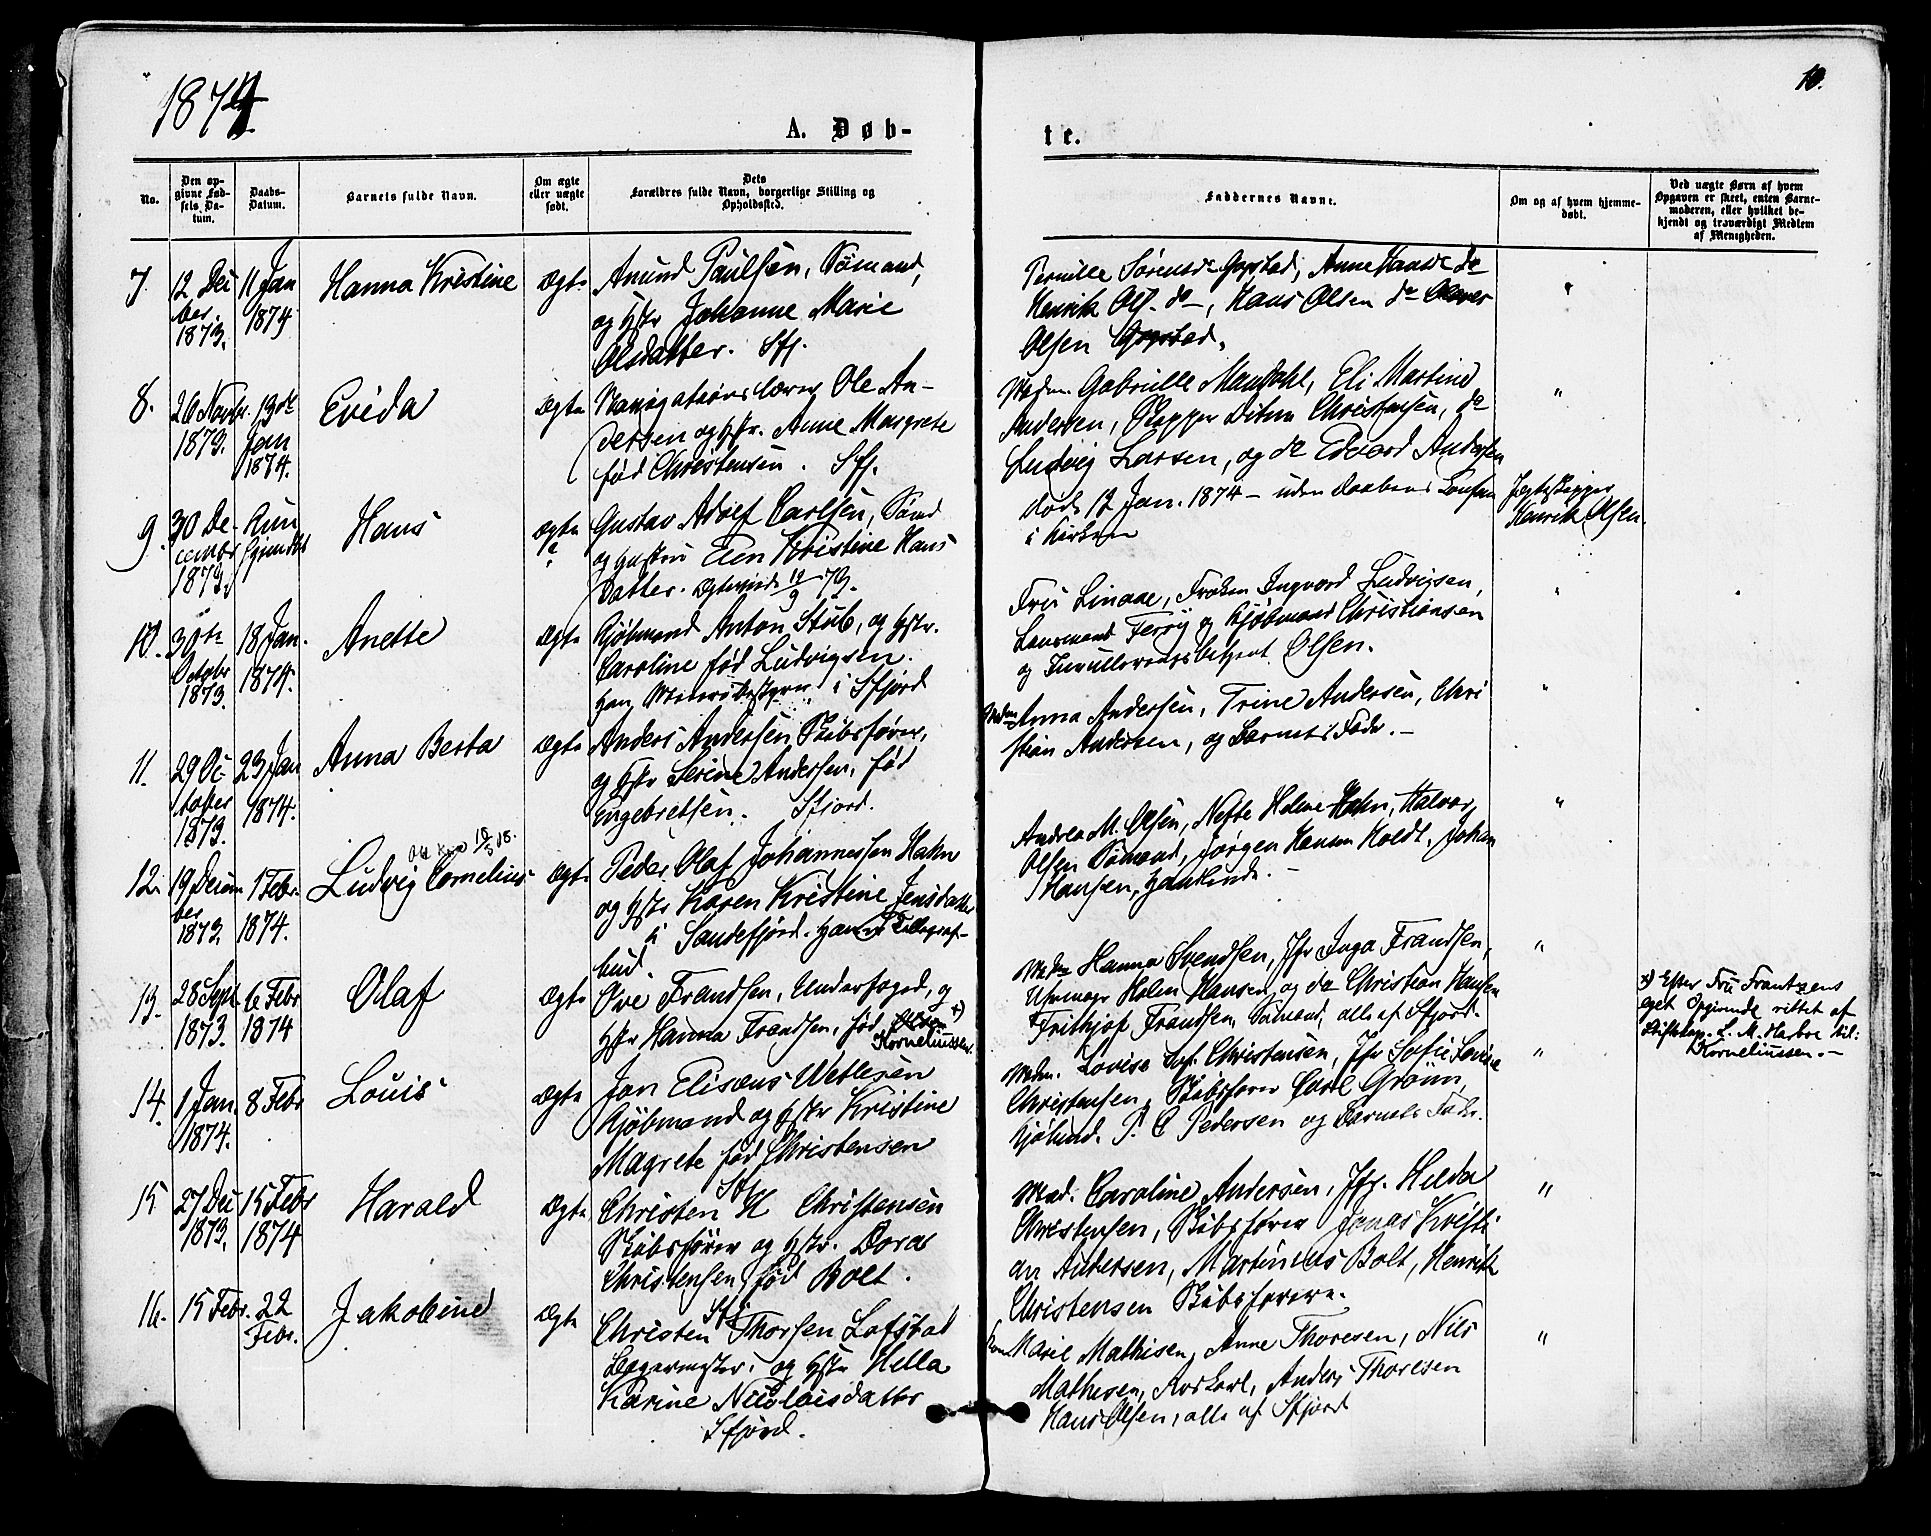 1874
10.
A. Døb-
te.
No.
Den op-
givne Fød-
sels Da-
tum.
Daabs-
Datum.
Barnets fulde Navn.
Om ægte
eller uægte
født.
Dets
Forældres fulde Navn, borgerlige Stilling og
Opholdssted.
Faddernes Navne.
Om og af hvem hjemme-
døbt.
Ved uægte Børn af hvem
Opgaven er skeet, enten Barne-
moderen, eller hvilket be-
kjendt og troværdigt Medlem
af Menigheden.
7.
12 Dec
ber
1873.
11 Jan
1874
Hanna Kristine
Ægte
Amund Paulsen, Sømand,
og Hstr Johanne Marie
Olsdatter. Sfj.
Pernille Sørensd Gogstad, Anne Hansd do
Henrik Ols. do, Hans Olsen do
Olsen Gogstad.
"
8.
26 Novbr.
1873.
19de
Jan
1874.
Evida
Ægte
Navigationslærer Ole An-
dersen og Hstr. Anne Margrete
født Christensen. Sfj.
Madm Gabrielle Mandahl, Eli Martine
Andersen, Skipper Ditm Christensen, do
Ludvig Larsen, og do Edvard Andersen
"
9.
30 De-
cembr
1873.
Kun
hjemdbt
Hans
Ægte
Gustav Adolf Carlsen, Sømd
og Hustru Elen Kristine Hans
datter. Ægteviede 19/9 73.
død 12 Jan. 1874 – uden Daabens
i Kirken
Jagtskipper
Henrik Olsen.
10.
30te
Octobr
1873.
18 Jan.
1874.
Anette
Ægte
Kjøbmand Anton Stub, og Hstr.
Caroline født Ludvigsen.
i Sfjord
Fru Linaae, Frøken Ingvard Ludvigsen,
Lensmand Ferry og Kjøbmand Christiansen
og Olsen.
"
11.
29 Oc
tober
1873.
23 Jan
1874.
Anna Berta
Ægte
Anders Andersen Skibsfører,
og Hstr Serine Andersen, født
Engebretsen. Sfjord.
Madm Anna Andersen, Trine Andersen, Chri
stian Andersen, og Barnets Fader. –
"
12.
19 Decem
ber
1873.
1 Febr.
1874.
10/5 18.
Ludvig Cornelius
Ægte
Peder Olaf Johannessen Hahn
og Hstr Karen Kristine Jensdatter
i Sandefjord. Han er Telegraf-
bud.
Andrea M. Olsen, Nette Helene Hahn, Halvor
Olsen Sømand, Jørgen Hansen Holdt, Johan
Hansen, Handlende. –
"
13.
28 Sept
1873.
6 Febr
1874
Olaf
Ægte
Ove Frandsen, Underfoged, og
Hstr Hanna Frandsen, født Olsen x)
Korneliussen.
Madm Hanna Svendsen, Jfr Inga Frandsen,
Uhrmagr Holm Hansen, og do Christian Hansen
Frithjof Frandsen, Sømand, alle af Sfjord.
"
x) Efter Fru Frantzens
eget Opgivende rettet af
Stiftskap. L. M. Harboe til:
Korneliussen. –
14.
1 Jan.
1874.
8 Febr
Louis
Ægte
Jan Elisæus Wetlesen
Kjøbmand og Hstr Kristine
Magrete født Christensen
Sfj
Madm. Lovise Sof. Christensen, Jfr Sofie Lovise
Christensen, Skibsfører Carl Grønn,
Kjøbmd. P. C Pedersen og Barnets Fader.
"
15
27 Dec
1873.
15 Febr
1874
Harald
Ægte
Christen H Christensen
Skibsfører og Hstr. Dora
Christensen, født Bolt.
Sfj
Mad. Caroline Andersen, Jfr. Hilda
Christensen, Skibsfører Jonas Kristi
an Andersen, Martinius Bolt, Henrik
Christensen Skibsførere.
"
16.
15 Febr.
22
Febr.
Jakobine
Ægte
Christen Thorsen Lofstad
Bagermester, og Hstr Hella
Karine Nicolaisdatter
Sfjord.
Kone Marie Mathisen, Anne Thoresen, Nils
Mathisen, Avskarl, Anders Thoresen
Hans Olsen, alle af Sfjord
"